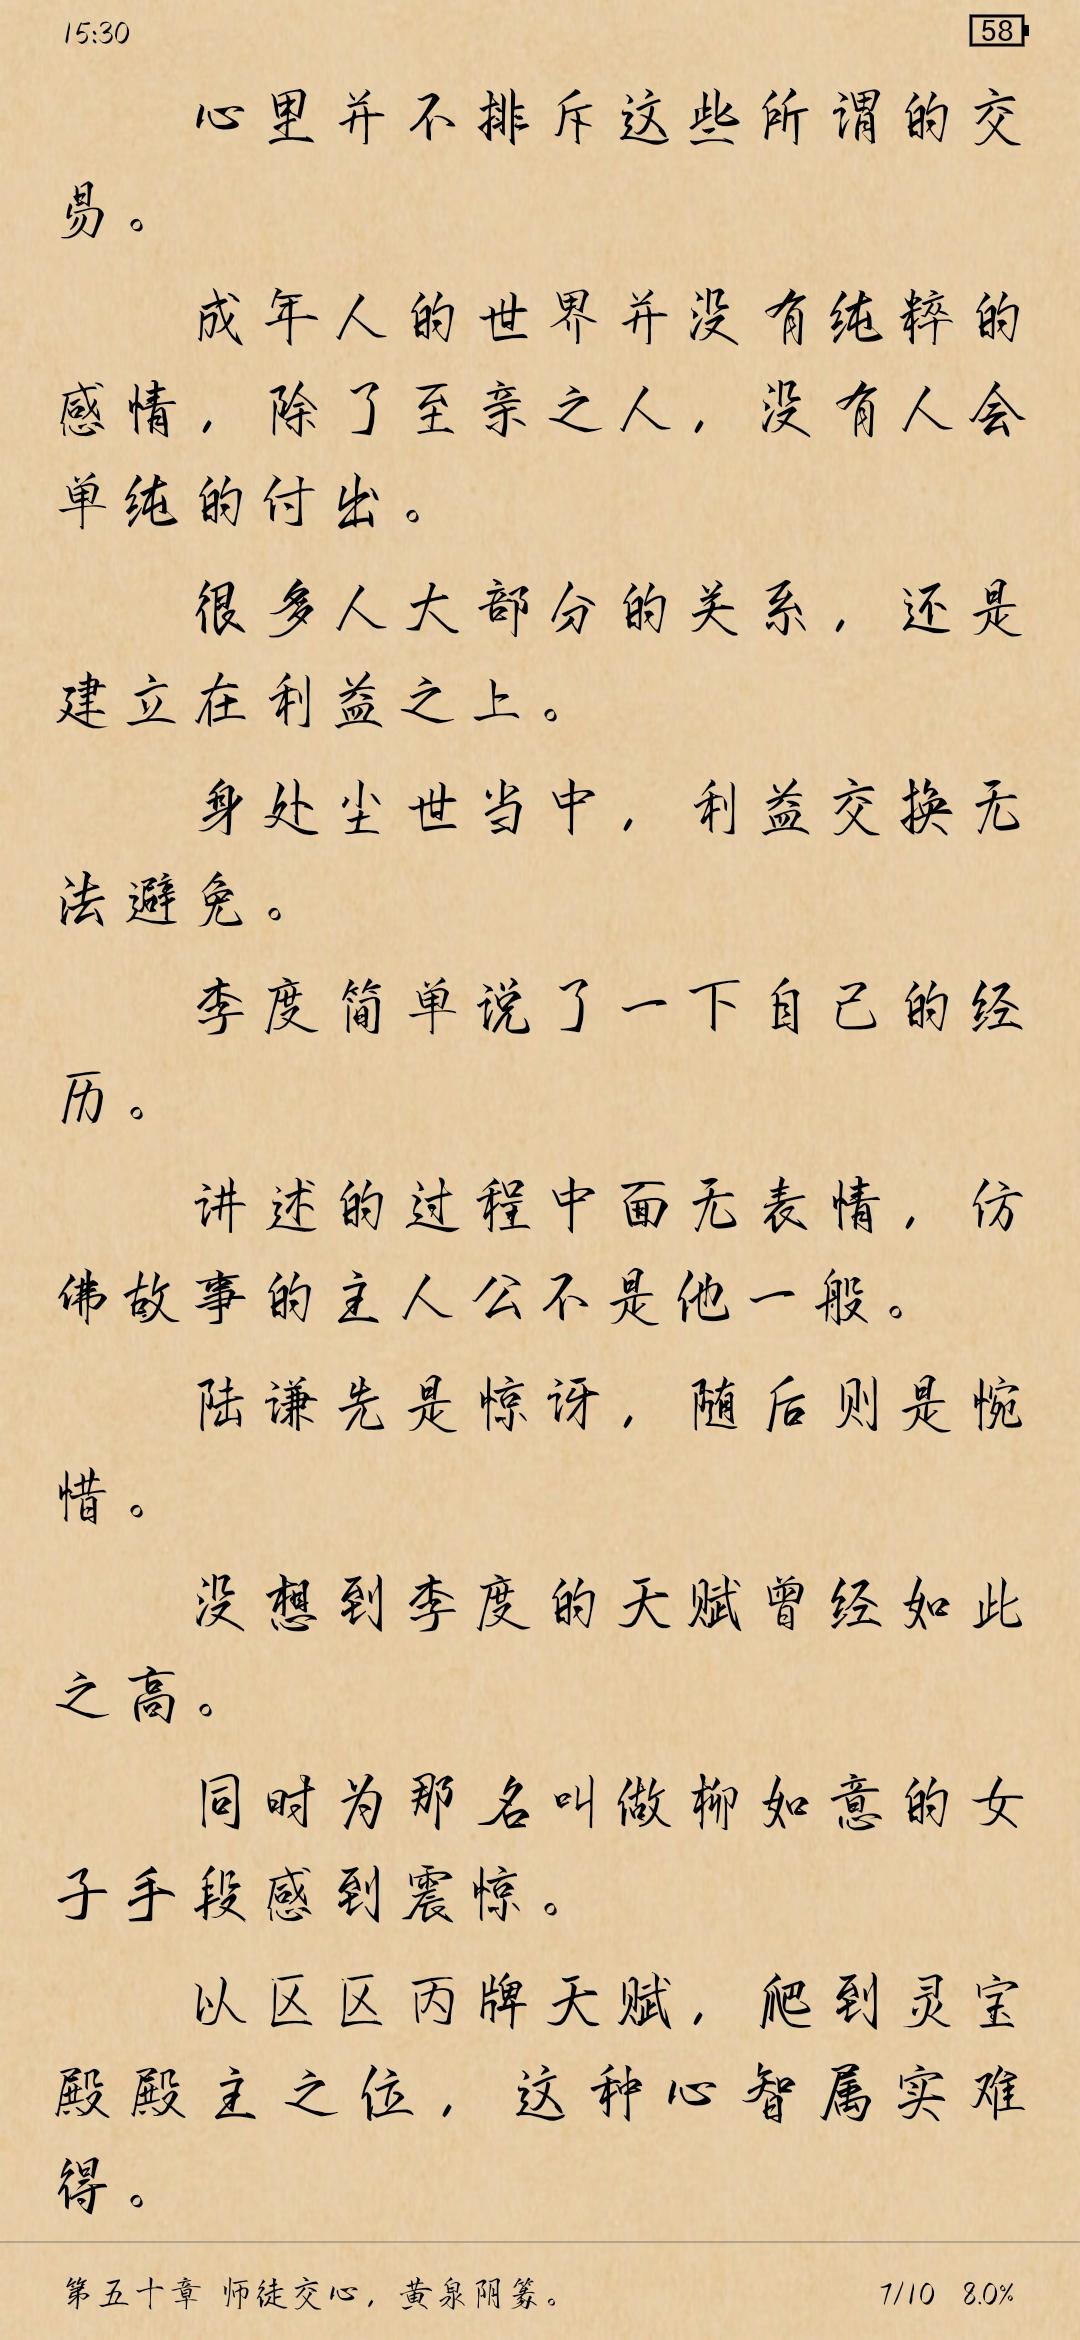 15:30
58
心里并不排斥这些所谓的交
易。
成年人的世界并没有纯粹的
感情，除了至亲之人，没有人会
单纯的付出。
很多人大部分的关系，还是
建立在利益之上。
身处尘世当中，利益交换无
法避免。
李度简单说了一下自己的经
历。
讲述的过程中面无表情，仿
佛故事的主人公不是他一般。
陆谦先是惊讶，随后则是惋
惜。
没想到李度的天赋曾经如此
之高。
同时为那名叫做柳如意的女
子手段感到震惊。
以区区丙牌天赋，爬到灵宝
殿殿主之位，这种心智属实难
得。
第五十章 师徒交心，黄泉阴篆。
7/10 8.0%